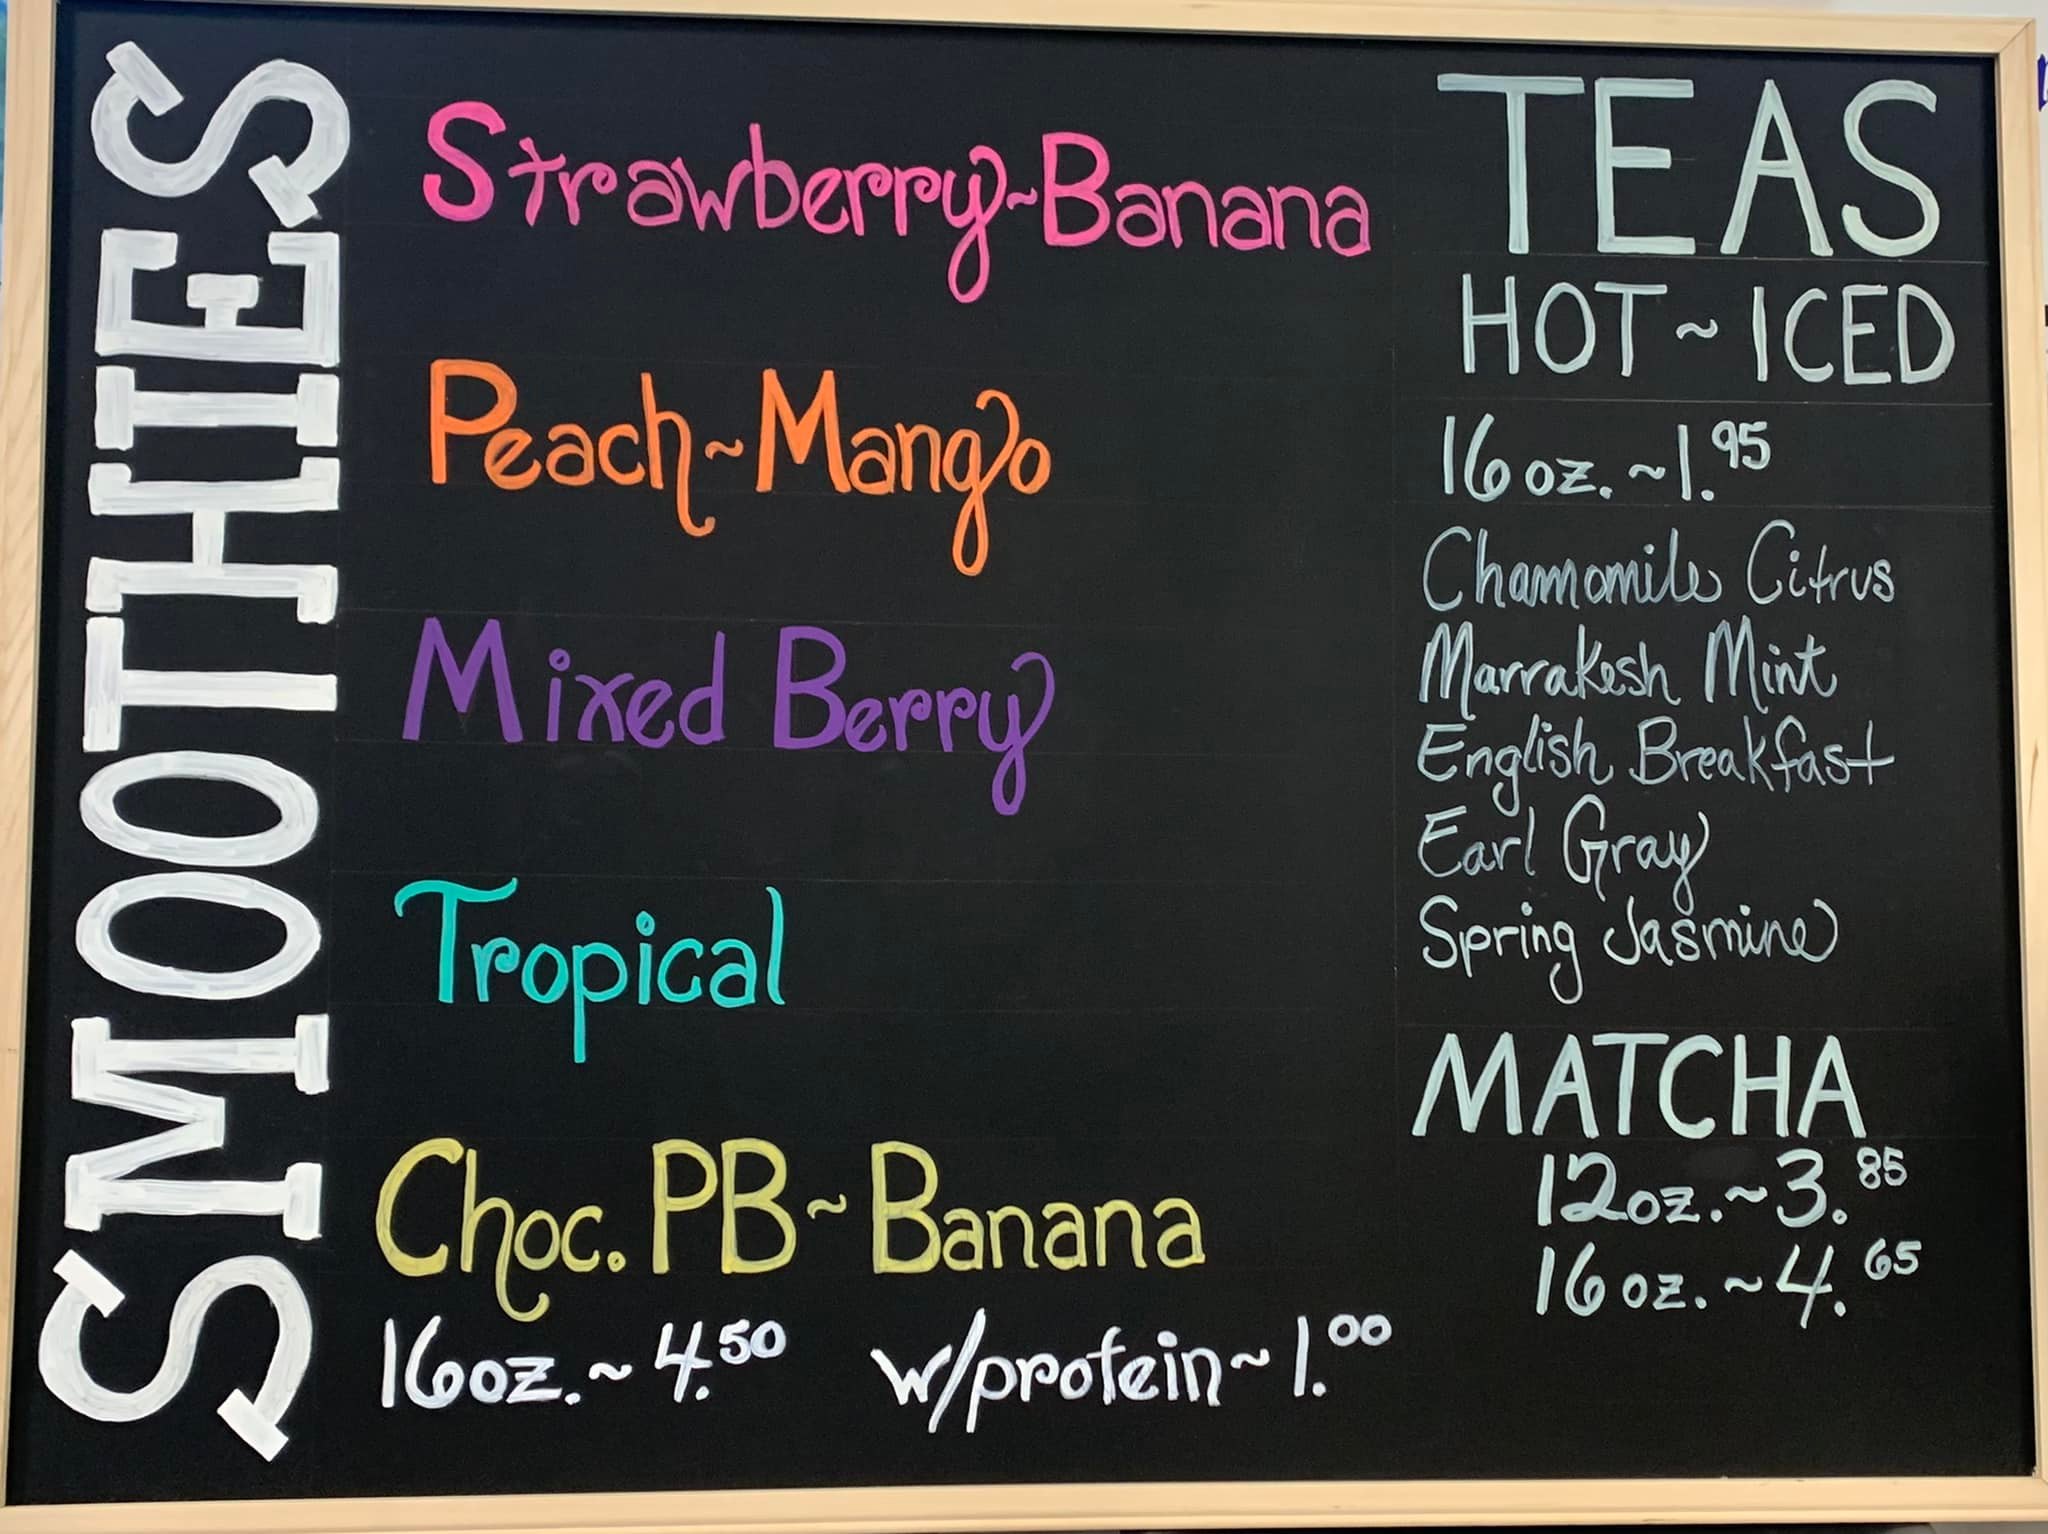 SMOOTHIES
Strawberry~Banana
Peach~Mango
Mixed Berry
Tropical
Choc. PB~Banana
16oz.~4.50 w/protein~1.00
TEAS
HOT~ICED
16oz.~1.95
Chamomile Citrus
Marrakesh Mint
English Breakfast
Earl Gray
Spring Jasmine
MATCHA
12oz.~3.85
16oz.~4.65